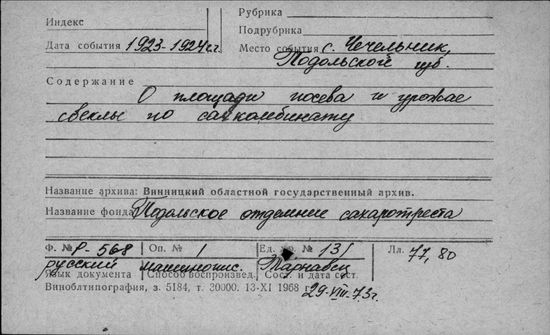 Индекс
Рубрика
Подрубрика
Дата события 1923-1924 г.г.
Место события с. Чечельник,
Подольской губ.
Содержание
О площади посева и урожае
свеклы по сахкомбинату
Название архива: Винницкий областной государственный архив.
Название фонда Подольское отделение сахаротреста
Ф. № Р-568 Оп. № 1 Ед. хр. № 131 Лл. 77, 80
русский машинопис. Тарнавец
Язык документа Способ воспроизвед. Сост. и дата сост.
Виноблтипография, з. 5184, т. 30000. 13-XI 1968 г. 29-VIII-73г.